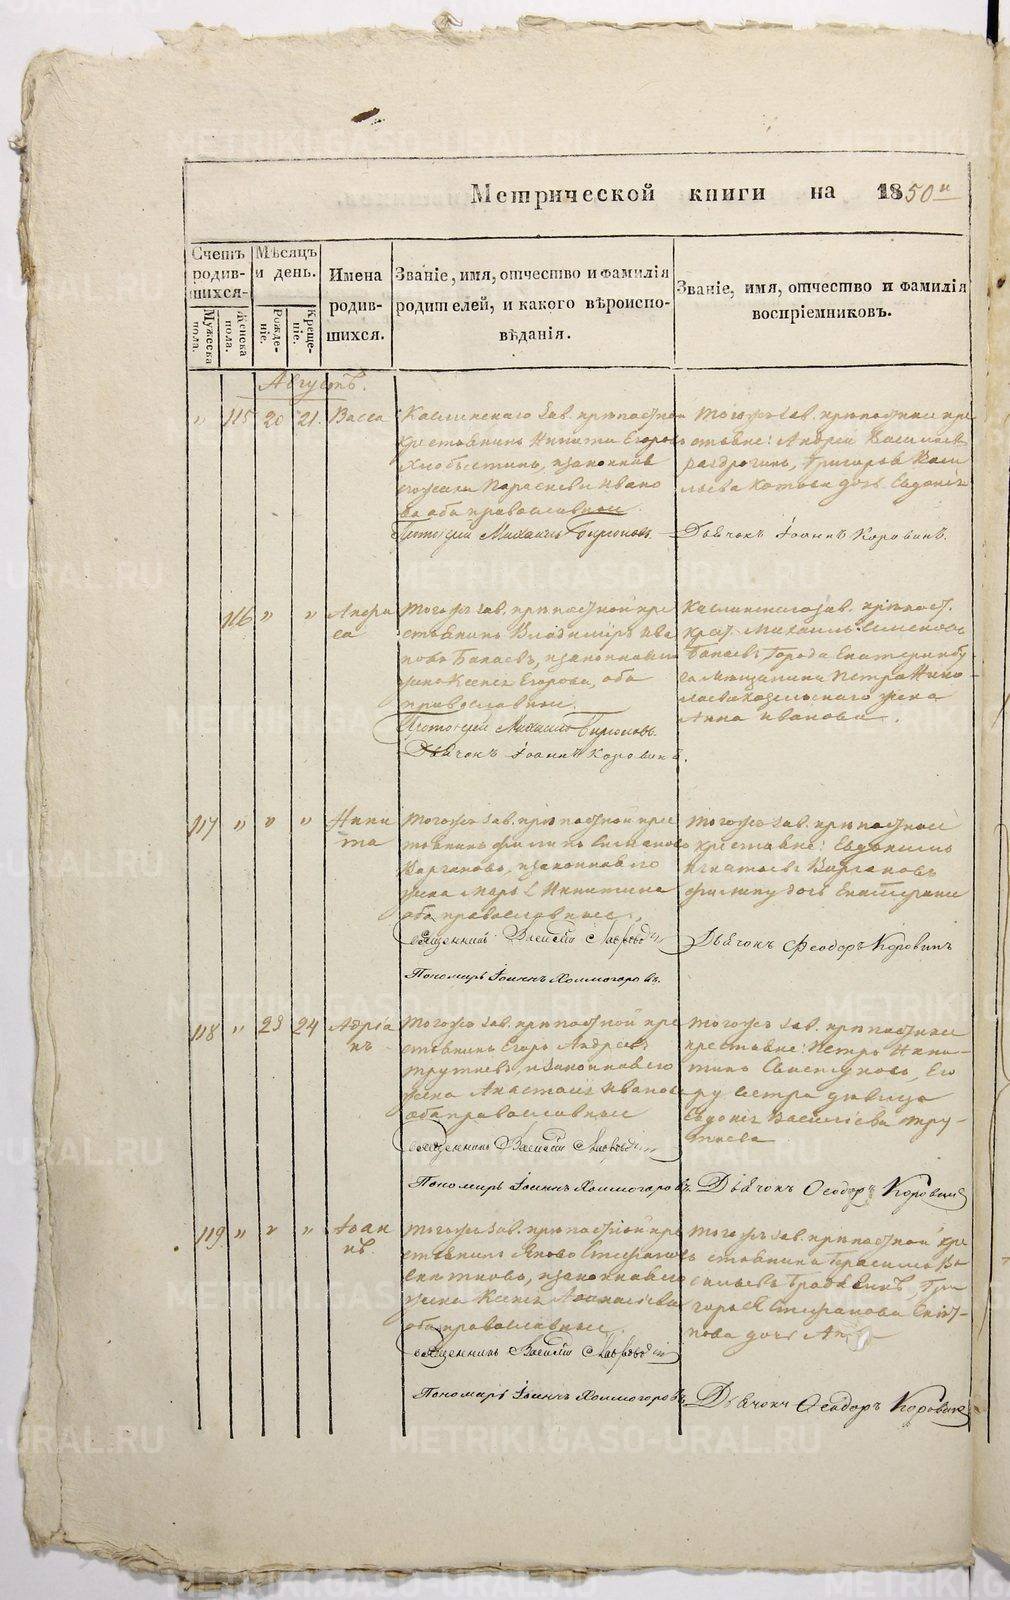 Метрической книги на 1850й
Счетъ родившихся.
Мужеска пола.
Женска пола.
Мѣсяцъ и день.
Рожденіе.
Крещеніе.
Имена родившихся.
Званіе, имя, отчество и фамилія
родителей, и какого вѣроиспо-
вѣданія.
Званіе, имя, отчество и фамилія
воспріемниковъ.
Августъ.
" 115 20 21. Васса
Каслинскаго зав. крѣпостной
крестьянинъ Никита Егоровъ
законная
его жена Параскева Ивано
ва оба православные
Протоіерей Михаилъ Бирюковъ.
Тогожъ зав. крѣпостные кре
стьяне: Андрей Васильевъ
Григорья Васи
льева Котова дочь Евдокія
Дьячокъ Іоаннъ Коровинъ.
116 " " Анфи
са
Тогожъ зав. крѣпостной кре
стьянинъ Владимиръ Ива
новъ Бапаевъ, законная
жена Ксенія Егорова, оба
православные.
Протоіерей Михаилъ Бирюковъ.
Дьячокъ Іоаннъ Коровинъ.
Каслинскаго зав. крѣпост.
крест. Михаилъ Семеновъ
Бапаевъ Города Екатеринбур
га мѣщанина Петра Нико
лаева жена
Анна Иванова.
117 " " " Ники
та
Тогожъ зав. крѣпостной кре
стьянинъ Филипъ Евдокимовъ
законная его
жена Марья Никитина
оба православные,
Священникъ Василій
Пономарь Іоаннъ Холмогоровъ.
Тогожъ зав. крѣпостные
крестьяне: Евдокимъ
Игнатьевъ
Филипу дочь Екатерина
Дьячокъ Феодоръ Коровинъ
118 " 23 24 Адріа
нъ
Тогожъ зав. крѣпостной кре
стьянинъ Егоръ Андреевъ
Трутневъ, законная его
жена Анастасія Иванова
оба православные
Священникъ Василій
Пономарь Іоаннъ Холмогоровъ.
Тогожъ зав. крѣпостные
крестьяне: Петръ Ники-
тинъ Его
ру сестра дѣвица
Евдокія Васильева Тру-
тнева
Дьячокъ Ѳеодоръ Коровинъ
119 " " " Іоан
нъ
Тогожъ зав. крѣпостной кре
стьянинъ Яковъ Стефановъ
законная его
жена Ксенія Афанасіева
оба православные,
Священникъ Василій
Пономарь Іоаннъ Холмогоровъ
Тогожъ зав. крѣпостной кре
стьянинъ Герасимъ Ва
сильевъ Гри
горья Стефанова
нова дочь
Дьячокъ Ѳеодоръ Коровинъ
METRIKI.GASO-URAL.RU